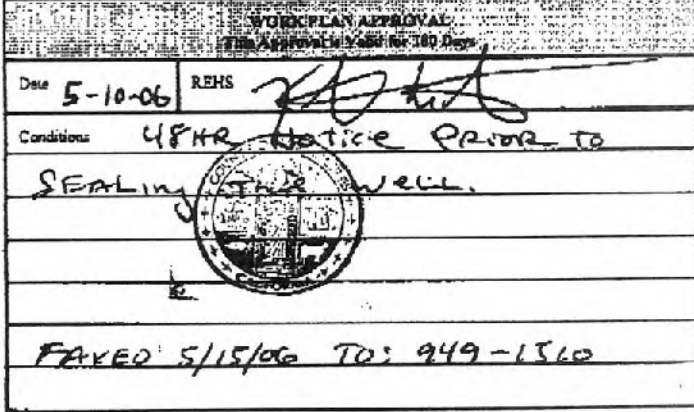 WORK PLAN APPROVAL
This Approval is Valid for 180 Days
Date 5-10-06 REHS
Conditions 48 HR Notice PRIOR TO
SEALing The Well.
FAXED 5/15/06 TO: 949-1510